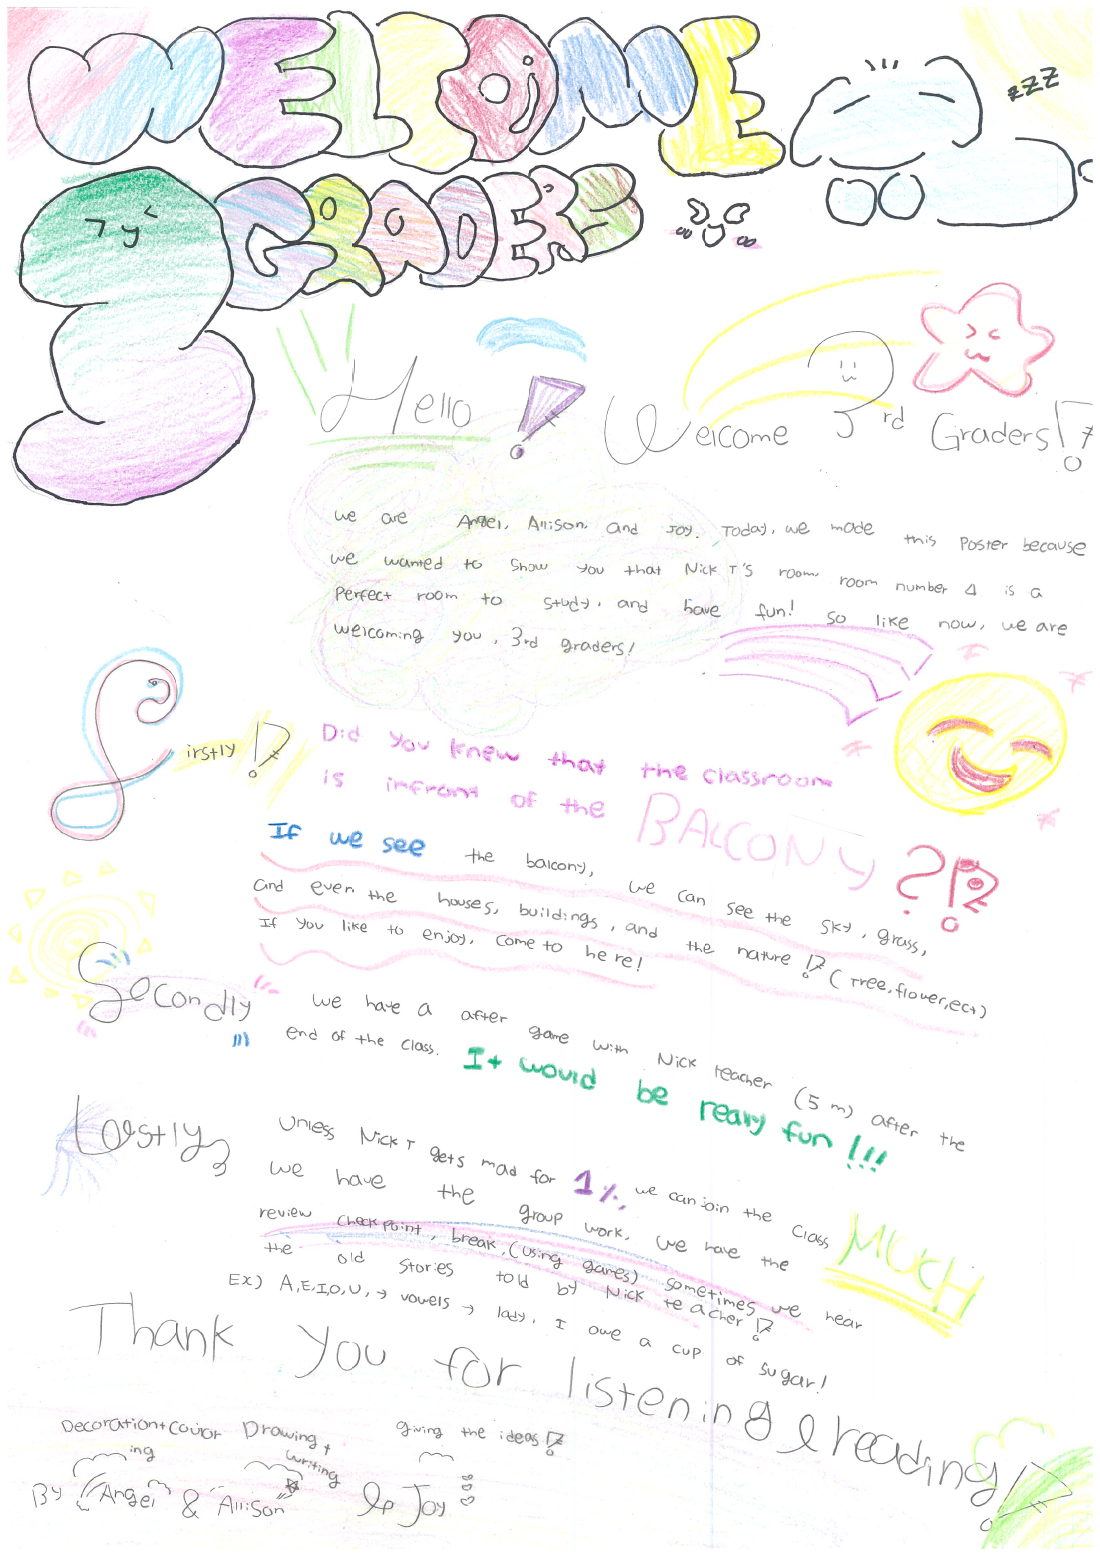 WELCOME
zzz
3 GRADERS
Hello! Welcome 3rd Graders!
We are Angel, Allison, and Joy. Today, we made this Poster because
we wanted to show you that Nick T's room room number 4 is a
Perfect room to study, and have fun! so like now, we are
welcoming you, 3rd graders!
Firstly!
Did you knew that the classroom
is infront of the BALCONY?!?
If we see the balcony, we can see the sky, grass,
and even the houses, buildings, and the nature! (Tree, flower, ect)
If you like to enjoy, come to here!
Secondly
we have a after game with Nick teacher (5 m) after the
end of the class. It would be really fun!!!
Lastly,
Unless Nick T gets mad for 1%, we can join the class MUCH
we have the group work, we have the
review checkpoint, break, (using games) sometimes we hear
the old stories told by Nick teacher!
Ex) A, E, I, O, U, → vowels → lady, I owe a cup of sugar!
Thank you for listening & reading!
Decoration+Colour ing Drawing + writing giving the ideas!
By Angel & Allison & Joy